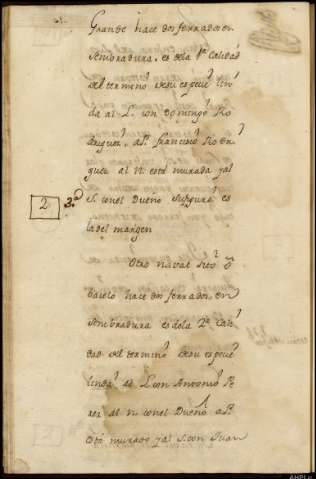 Grande hace dos ferrados en
sembradura, es dela 1ª Calidad
del termino desu espeçie lin
da al L. con Domingo Ro
driguez, a P. francisco Rodri
guez al N. esta murada yal
S. conel Dueño su figura es
la del margen
2 3ª
Otro naval sito ô
hace dos ferrados en
sembradura es dela 2ª Cali
dad del termino desu espeçie
linda al L con Antonio Pe
rez al N. conel Dueño al P.
está murado yal S. con Juan
AHPLu